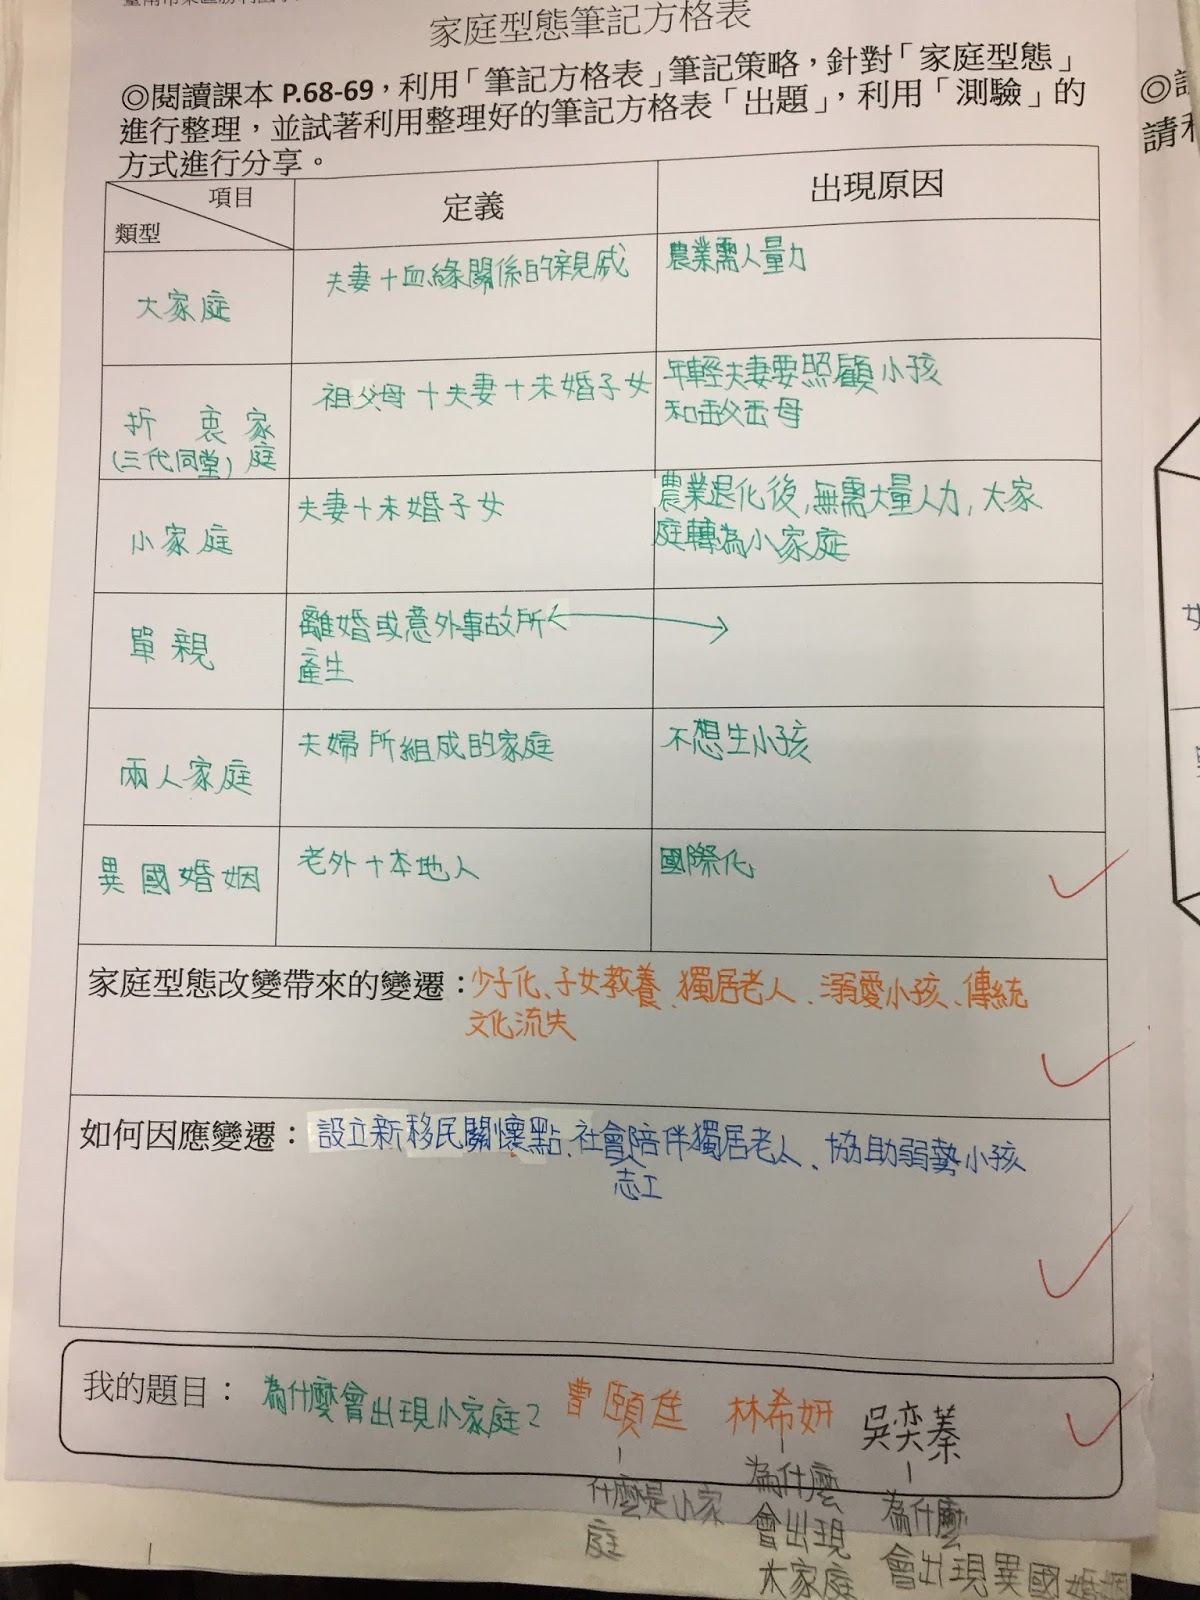 家庭型態筆記方格表
◎閱讀課本 P.68-69，利用「筆記方格表」筆記策略，針對「家庭型態」
進行整理，並試著利用整理好的筆記方格表「出題」，利用「測驗」的
方式進行分享。
項目
類型
定義
出現原因
大家庭
夫妻+血緣關係的親戚
農業需人量力
折衷家
(三代同堂)庭
祖父母+夫妻+未婚子女
年輕夫妻要照顧小孩
小家庭
夫妻+未婚子女
農業退化後,無需大量人力,大家
庭轉為小家庭
單親
離婚或意外事故所
產生
兩人家庭
夫婦所組成的家庭
不想生小孩
異國婚姻
老外+本地人
國際化
家庭型態改變帶來的變遷：少子化、子女教養、獨居老人、溺愛小孩、傳統
文化流失
如何因應變遷：設立新移民關懷點、社會陪伴獨居老人、協助弱勢小孩
志工
我的題目：為什麼會出現小家庭?
林希妍
吳奕蓁
什麼是小家
庭
為什麼
會出現
大家庭
為什麼
會出現異國婚姻
◎
請